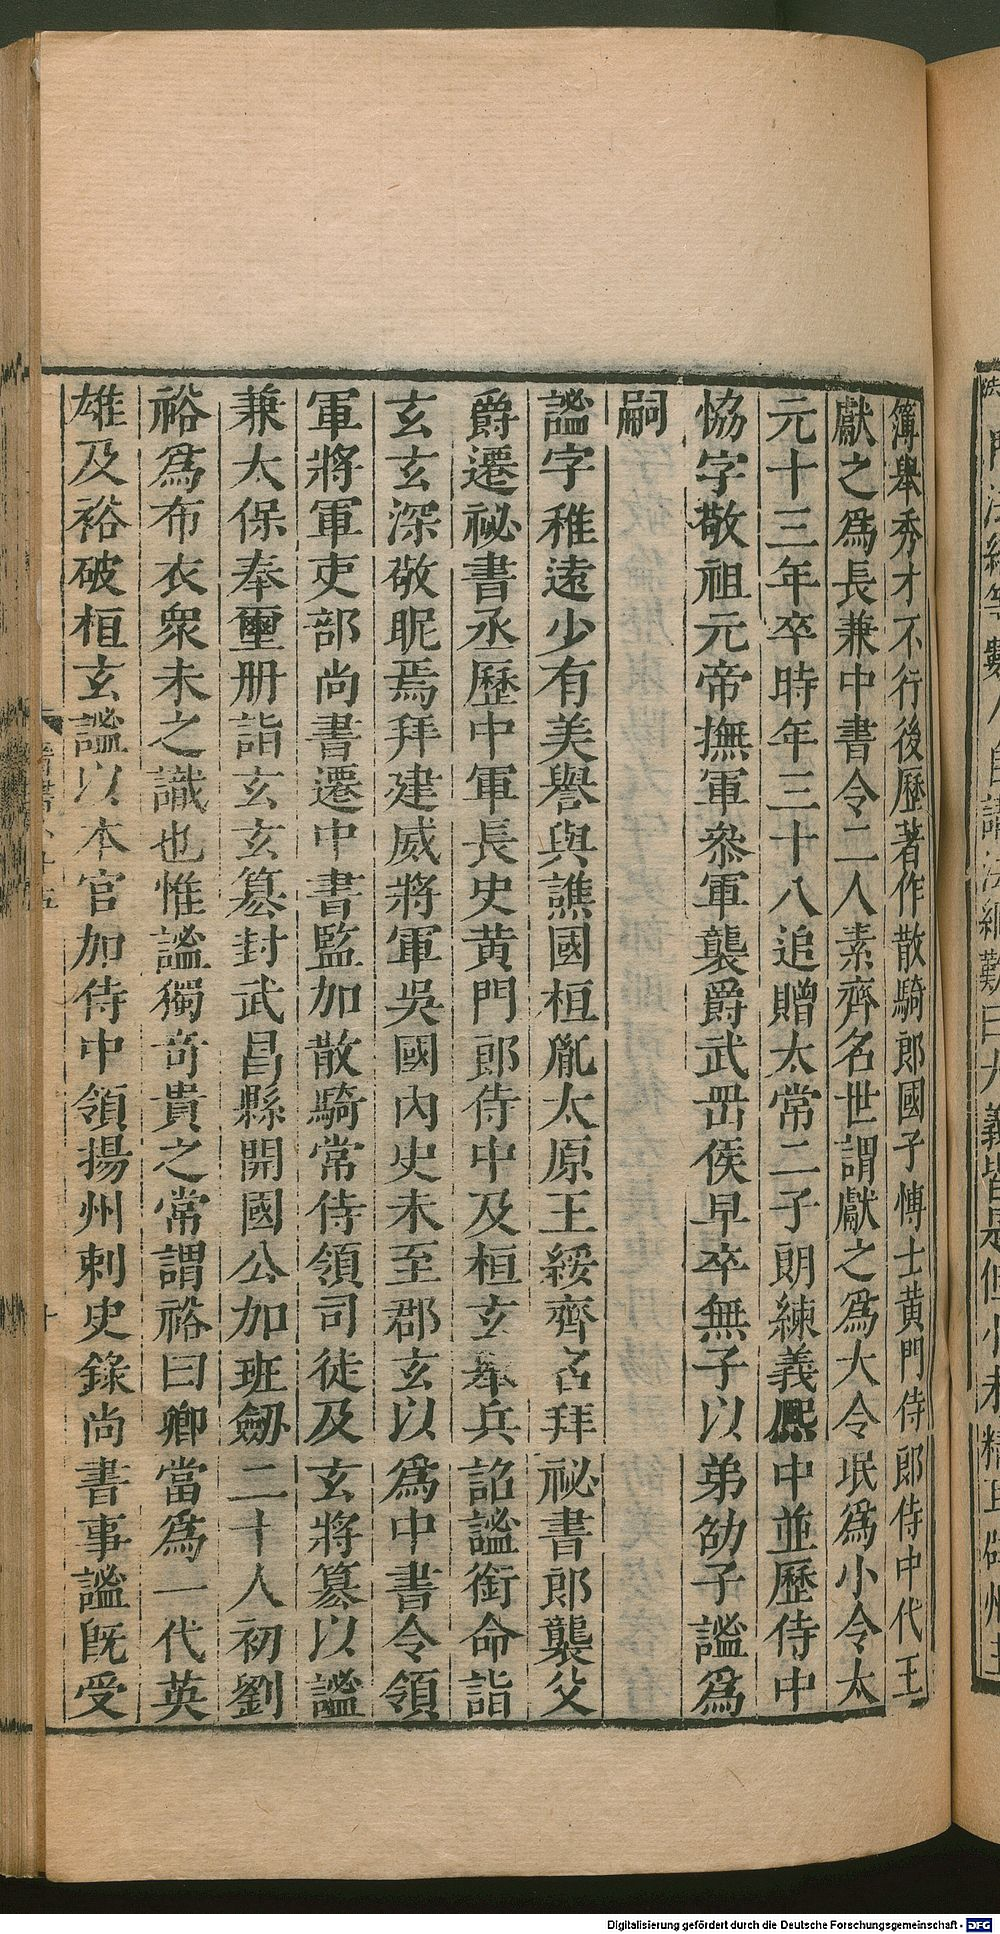 簿舉秀才不行後歷著作散騎郎國子博士黃門侍郎侍中代王
獻之爲長兼中書令二人素齊名世謂獻之爲大令珉爲小令太
元十三年卒時年三十八追贈太常二子朗練義熙中並歷侍中
恊字敬祖元帝撫軍叅軍襲爵武岡侯早卒無子以弟劭子謐爲
嗣
謐字稚遠少有美譽與譙國桓胤太原王綏齊名拜祕書郎襲父
爵遷祕書丞歷中軍長史黃門郎侍中及桓玄舉兵詔謐銜命詣
玄玄深敬昵焉拜建威將軍吳國內史未至郡玄以爲中書令領
軍將軍吏部尚書遷中書監加散騎常侍領司徒及玄將篡以謐
兼太保奉璽册詣玄玄篡封武昌縣開國公加班劒二十人初劉
裕爲布衣衆未之識也惟謐獨竒貴之常謂裕曰卿當爲一代英
雄及裕破桓玄謐以本官加侍中領揚州刺史錄尚書事謐旣受
Digitalisierung gefördert durch die Deutsche Forschungsgemeinschaft - DFG